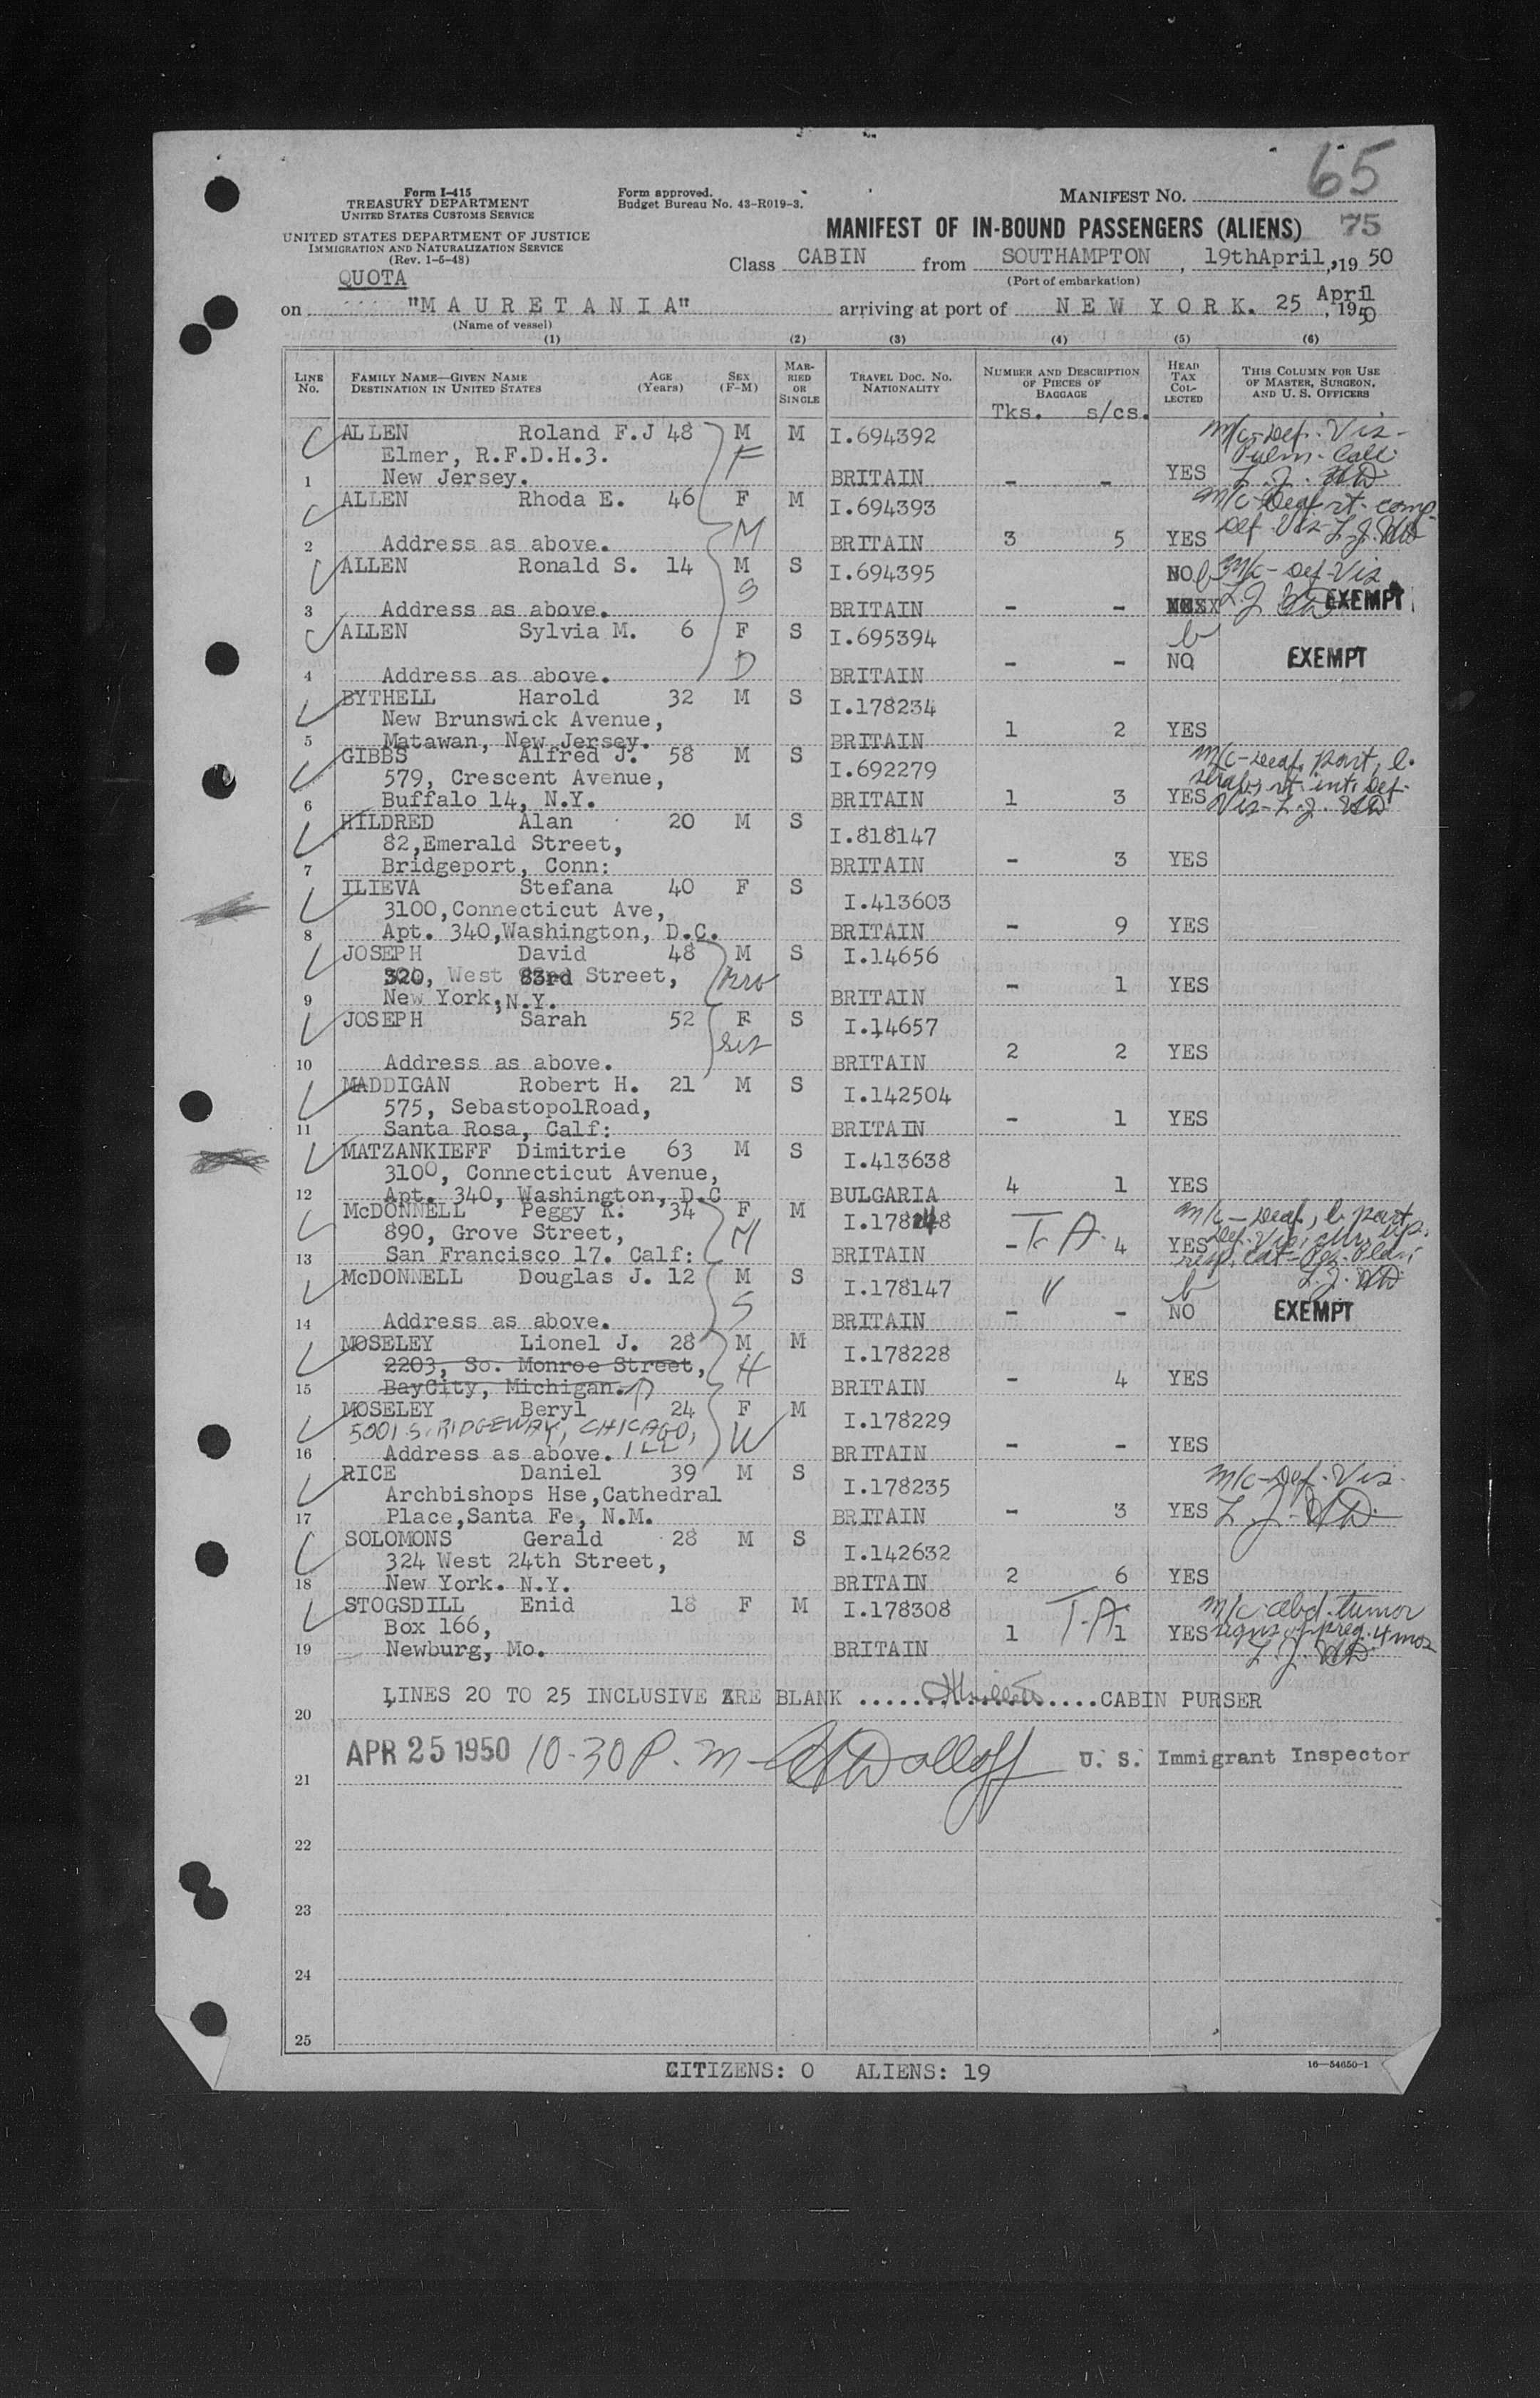 65
Form I-415
TREASURY DEPARTMENT
UNITED STATES CUSTOMS SERVICE
UNITED STATES DEPARTMENT OF JUSTICE
IMMIGRATION AND NATURALIZATION SERVICE
(Rev. 1-5-48)
Form approved.
Budget Bureau No. 43-R019-3.
MANIFEST No.
MANIFEST OF IN-BOUND PASSENGERS (ALIENS) 75
QUOTA
Class CABIN from SOUTHAMPTON, 19thApril, 1950
(Port of embarkation)
on "MAURETANIA" arriving at port of NEW YORK. 25 April, 1950
(Name of vessel)
(1) (2) (3) (4) (5) (6)
LINE No. FAMILY NAME—GIVEN NAME DESTINATION IN UNITED STATES AGE (Years) SEX (F-M) MARRIED OR SINGLE TRAVEL DOC. No. NATIONALITY NUMBER AND DESCRIPTION OF PIECES OF BAGGAGE HEAD TAX COLLECTED THIS COLUMN FOR USE OF MASTER, SURGEON, AND U. S. OFFICERS
Tks. s/cs.
ALLEN Roland F.J 48 M M I.694392 m/c-Def. Vis-
Elmer, R.F.D.H.3. F
1 New Jersey. BRITAIN - - YES
ALLEN Rhoda E. 46 F M I.694393 m/c-Deaf rt. comp-
2 Address as above. M BRITAIN 3 5 YES Def Vis-
ALLEN Ronald S. 14 M S I.694395 NO m/c-Def-Vis
3 Address as above. S BRITAIN - - EXEMPT
ALLEN Sylvia M. 6 F S I.695394
4 Address as above. D BRITAIN - - NO EXEMPT
BYTHELL Harold 32 M S I.178234
New Brunswick Avenue,
5 Matawan, New Jersey. BRITAIN 1 2 YES
GIBBS Alfred J. 58 M S I.692279 m/c-Deaf, part, l.
579, Crescent Avenue,
6 Buffalo 14, N.Y. BRITAIN 1 3 YES
HILDRED Alan 20 M S I.818147
82,Emerald Street,
7 Bridgeport, Conn: BRITAIN - 3 YES
ILIEVA Stefana 40 F S I.413603
3100,Connecticut Ave,
8 Apt. 340,Washington, D.C. BRITAIN - 9 YES
JOSEPH David 48 M S I.14656
320, West 83rd Street, bro
9 New York,N.Y. BRITAIN - 1 YES
JOSEPH Sarah 52 F S I.14657
sis
10 Address as above. BRITAIN 2 2 YES
MADDIGAN Robert H. 21 M S I.142504
575, SebastopolRoad,
11 Santa Rosa, Calf: BRITAIN - 1 YES
MATZANKIEFF Dimitrie 63 M S I.413638
3100, Connecticut Avenue,
12 Apt. 340, Washington, D.C BULGARIA 4 1 YES
McDONNELL Peggy K. 34 F M m/c-Deaf, l. part
890, Grove Street, M T. A.
13 San Francisco 17. Calf: BRITAIN - 4 YES
McDONNELL Douglas J. 12 M S I.178147
14 Address as above. S BRITAIN - - NO EXEMPT
MOSELEY Lionel J. 28 M M I.178228
2203, So. Monroe Street, H
15 BayCity, Michigan. BRITAIN - 4 YES
MOSELEY Beryl 24 F M I.178229
5001 S. RIDGEWAY, CHICAGO, ILL W
16 Address as above. BRITAIN - - YES
RICE Daniel 39 M S I.178235 m/c-Def-Vis.
Archbishops Hse,Cathedral
17 Place,Santa Fe, N.M. BRITAIN - 3 YES
SOLOMONS Gerald 28 M S I.142632
324 West 24th Street,
18 New York. N.Y. BRITAIN 2 6 YES
STOGSDILL Enid 18 F M I.178308 m/c-abd. tumor
Box 166, T.A. signs of preg. 4 mos
19 Newburg, Mo. BRITAIN 1 1 YES
LINES 20 TO 25 INCLUSIVE ARE BLANK CABIN PURSER
20
APR 25 1950 10-30 P.m- U. S. Immigrant Inspector
21
22
23
24
25
CITIZENS: 0 ALIENS: 19
16—54650-1